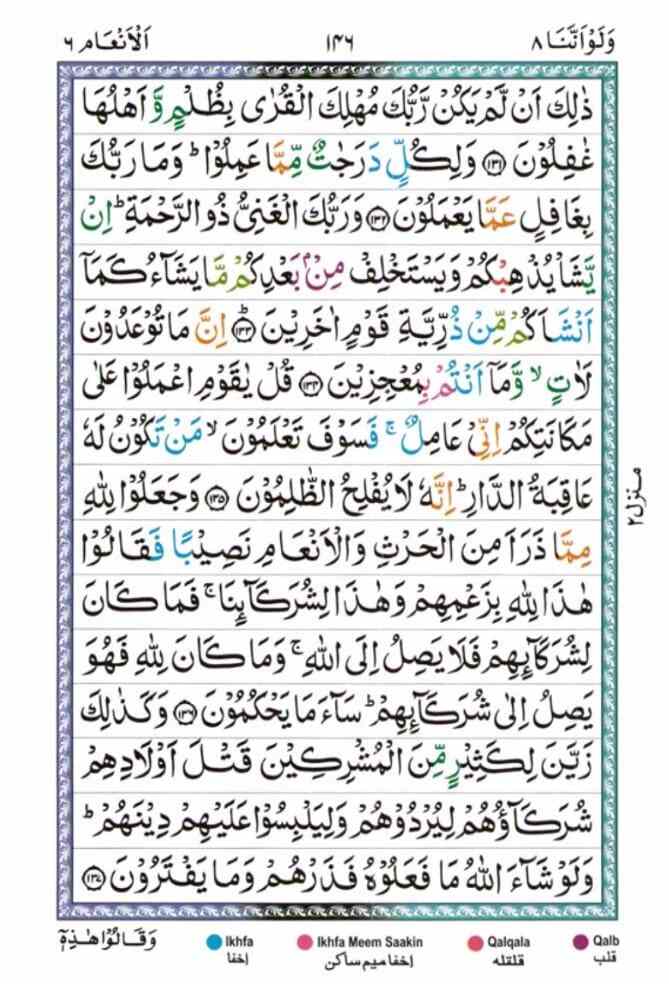 وَلَوْ اَنَّنَا ٨ ١٤٦ اَلْاَنْعَام ٦
ذٰلِكَ اَنْ لَّمْ يَكُنْ رَّبُّكَ مُهْلِكَ الْقُرٰى بِظُلْمٍ وَّ اَهْلُهَا
غٰفِلُوْنَ ﴿١٣١﴾ وَلِكُلٍّ دَرَجٰتٌ مِّمَّا عَمِلُوْا ؕ وَمَا رَبُّكَ
بِغَافِلٍ عَمَّا يَعْمَلُوْنَ ﴿١٣٢﴾ وَرَبُّكَ الْغَنِىُّ ذُو الرَّحْمَةِ ؕ اِنْ
يَّشَاْ يُذْهِبْكُمْ وَيَسْتَخْلِفْ مِنْۢ بَعْدِكُمْ مَّا يَشَآءُ كَمَاۤ
اَنْشَاَكُمْ مِّنْ ذُرِّيَّةِ قَوْمٍ اٰخَرِيْنَ ﴿١٣٣﴾ؕ اِنَّ مَا تُوْعَدُوْنَ
لَاٰتٍ ۙ وَّمَاۤ اَنْتُمْ بِمُعْجِزِيْنَ ﴿١٣٤﴾ قُلْ يٰقَوْمِ اعْمَلُوْا عَلٰى
مَكَانَتِكُمْ اِنِّىْ عَامِلٌ ۚ فَسَوْفَ تَعْلَمُوْنَ ۙ مَنْ تَكُوْنُ لَهٗ
عَاقِبَةُ الدَّارِ ؕ اِنَّهٗ لَا يُفْلِحُ الظّٰلِمُوْنَ ﴿١٣٥﴾ وَجَعَلُوْا لِلّٰهِ
مِمَّا ذَرَاَ مِنَ الْحَرْثِ وَالْاَنْعَامِ نَصِيْبًا فَقَالُوْا
هٰذَا لِلّٰهِ بِزَعْمِهِمْ وَهٰذَا لِشُرَكَآئِنَا ۚ فَمَا كَانَ
لِشُرَكَآئِهِمْ فَلَا يَصِلُ اِلَى اللّٰهِ ۚ وَمَا كَانَ لِلّٰهِ فَهُوَ
يَصِلُ اِلٰى شُرَكَآئِهِمْ ؕ سَآءَ مَا يَحْكُمُوْنَ ﴿١٣٦﴾ وَكَذٰلِكَ
زَيَّنَ لِكَثِيْرٍ مِّنَ الْمُشْرِكِيْنَ قَتْلَ اَوْلَادِهِمْ
شُرَكَآؤُهُمْ لِيُرْدُوْهُمْ وَلِيَلْبِسُوْا عَلَيْهِمْ دِيْنَهُمْ ؕ
وَلَوْ شَآءَ اللّٰهُ مَا فَعَلُوْهُ فَذَرْهُمْ وَمَا يَفْتَرُوْنَ ﴿١٣٧﴾
منزل ٢
وَقَالُوْا هٰذِهٖۤ
Ikhfa Ikhfa Meem Saakin Qalqala Qalb
إخفا إخفا ميم ساكن قلقله قلب